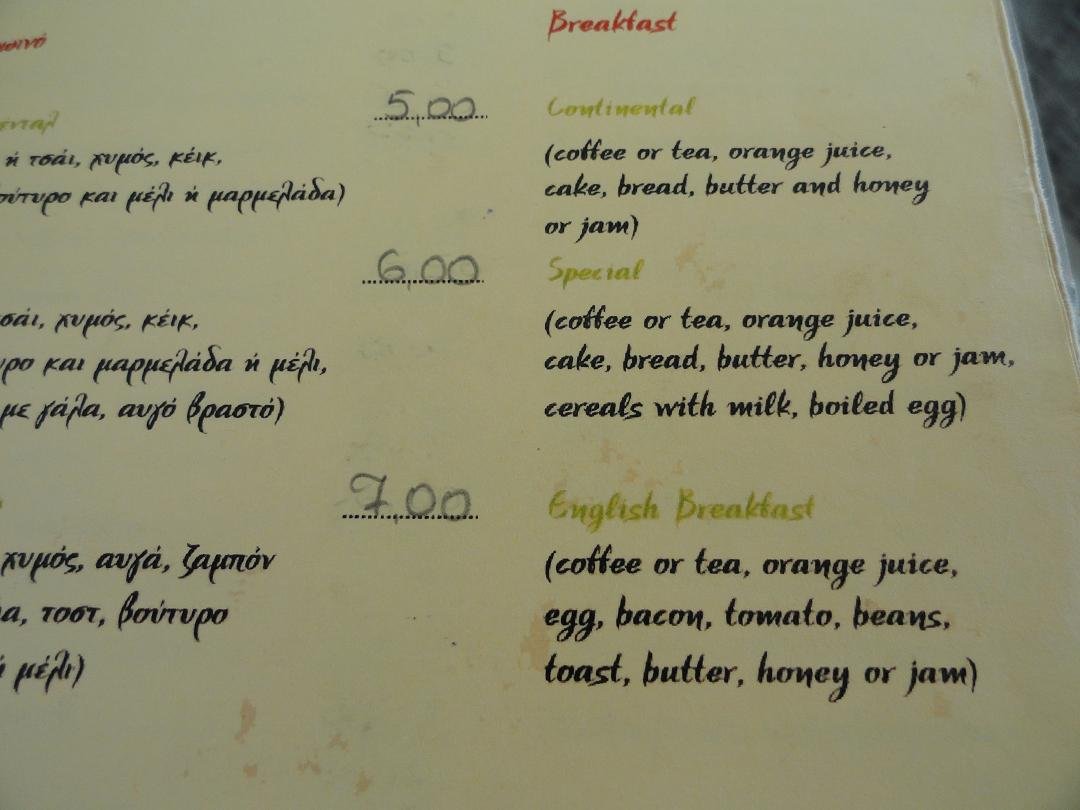 Breakfast
5,00
Continental
ή τσάι, χυμός, κέικ,
(coffee or tea, orange juice,
και μέλι ή μαρμελάδα)
cake, bread, butter and honey
or jam)
6,00
Special
χυμός, κέικ,
(coffee or tea, orange juice,
και μαρμελάδα ή μέλι,
cake, bread, butter, honey or jam,
με γάλα, αυγό βραστό)
cereals with milk, boiled egg)
7,00
English Breakfast
χυμός, αυγά, ζαμπόν
(coffee or tea, orange juice,
τοστ, βούτυρο
egg, bacon, tomato, beans,
μέλι)
toast, butter, honey or jam)